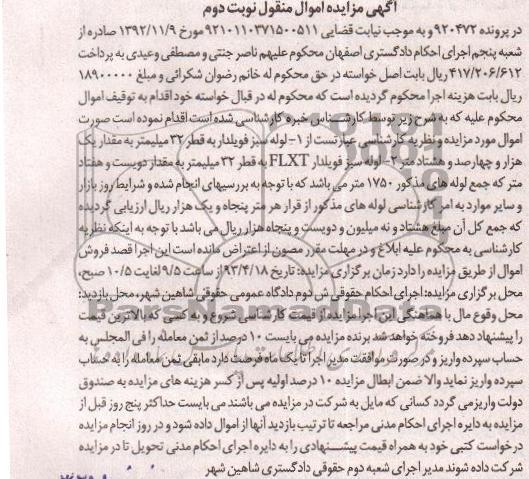 آگهی مزایده اموال منقول نوبت دوم
در پرونده ۹۲۰۴۷۲ و به موجب نیابت قضایی ۹۲۱۰۱۱۰۳۷۱۵۰۰۵۱۱ مورخ ۱۳۹۲/۱۱/۹ صادره از
شعبه پنجم اجرای احکام دادگستری اصفهان محکوم علیهم ناصر جنتی و مصطفی وعیدی به پرداخت
۴۱۷/۲۰۶/۶۱۲ ریال بابت اصل خواسته در حق محکوم له خانم رضوان شکرائی و مبلغ ۱۸۹۰۰۰۰۰
ریال بابت هزینه اجرا محکوم گردیده است که محکوم له در قبال خواسته خود اقدام به توقیف اموال
محکوم علیه که به شرح زیر توسط کارشناس خبره کارشناسی شده است اقدام نموده است صورت
اموال مورد مزایده و نظریه کارشناسی عبارتست از ۱- لوله سبز فویلدار به قطر ۳۲ میلیمتر به مقدار یک
هزار و چهارصد و هشتاد متر ۲- لوله سبز فویلدار FLXT به قطر ۳۲ میلیمتر به مقدار دویست و هفتاد
متر که جمع لوله های مذکور ۱۷۵۰ متر می باشد که با توجه به بررسیهای انجام شده و شرایط روز بازار
و سایر موارد به امر کارشناسی لوله های مذکور از قرار هر متر پنجاه و یک هزار ریال ارزیابی گردیده
که جمع کل آن مبلغ هشتاد و نه میلیون و دویست و پنجاه هزار ریال می باشد با توجه به اینکه نظریه
کارشناسی به محکوم علیه ابلاغ و در مهلت مقرر مصون از اعتراض مانده است این اجرا قصد فروش
اموال از طریق مزایده را دارد زمان برگزاری مزایده: تاریخ ۹۳/۴/۱۸ از ساعت ۹/۵ لغایت ۱۰/۵ صبح،
محل برگزاری مزایده: اجرای احکام حقوقی ش دوم دادگاه عمومی حقوقی شاهین شهر، محل بازدید:
محل وقوع مال با هماهنگی این اجرا مزایده از قیمت کارشناسی شروع و به کسانی که بالاترین قیمت
را پیشنهاد دهد فروخته خواهد شد برنده مزایده می بایست ۱۰ درصد از ثمن معامله را فی المجلس به
حساب سپرده واریز و در صورت موافقت مدیر اجرا تا یک ماه فرصت دارد مابقی ثمن معامله را به حساب
سپرده واریز نماید والا ضمن ابطال مزایده ۱۰ درصد اولیه پس از کسر هزینه های مزایده به صندوق
دولت واریز می گردد کسانی که مایل به شرکت در مزایده می باشند می بایست حداکثر پنج روز قبل از
مزایده به دایره اجرای احکام مدنی مراجعه تا ترتیب بازدید آنها از اموال داده شود و در روز انجام مزایده
درخواست کتبی خود به همراه قیمت پیشنهادی را به دایره اجرای احکام مدنی تحویل تا در مزایده
شرکت داده شوند مدیر اجرای شعبه دوم حقوقی دادگستری شاهین شهر